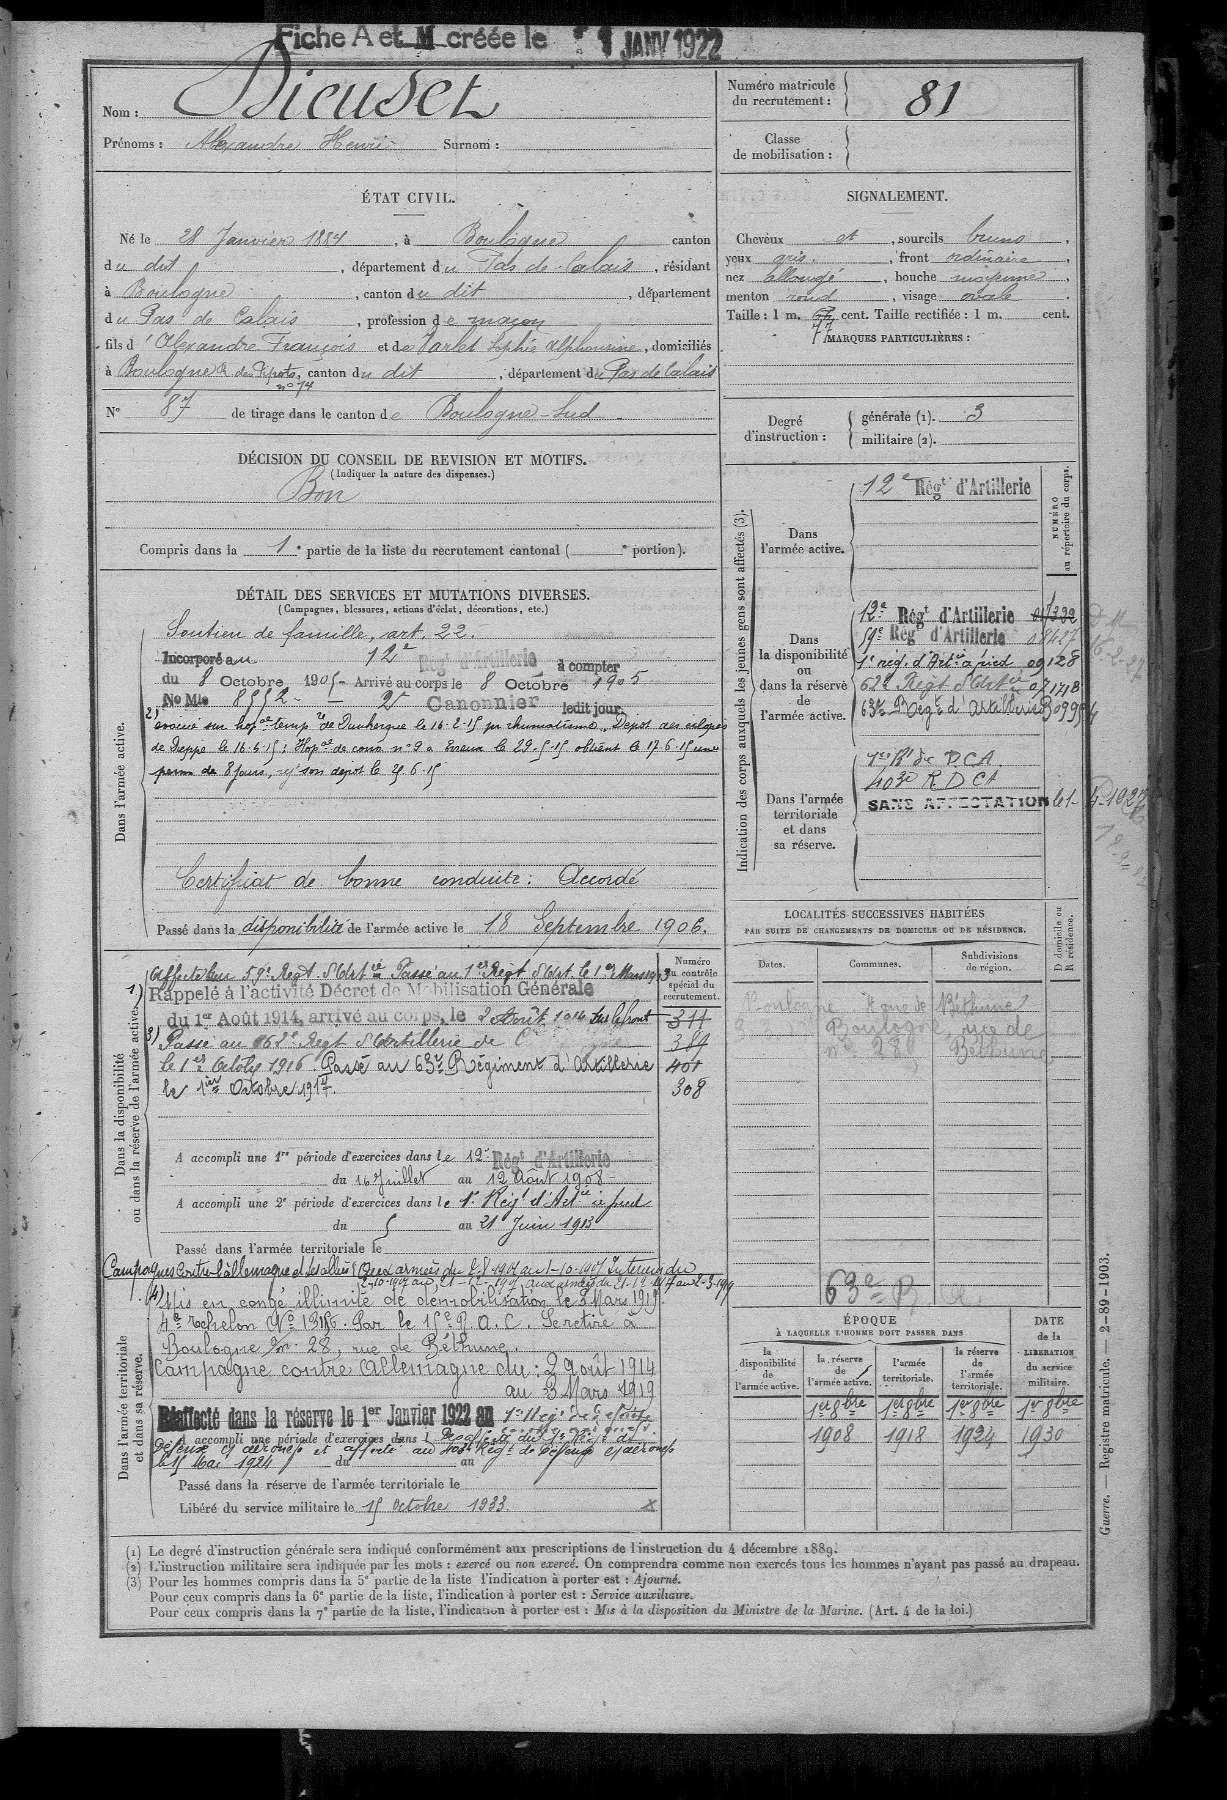 Fiche A et M créée le 1 JANV 1922
Nom : Dieuset
Prénoms : Alexandre Henri Surnom :
Numéro matricule du recrutement : 81
Classe de mobilisation :
ÉTAT CIVIL.
Né le 28 Janvier 1884, à Boulogne canton
du dit, département du Pas-de-Calais, résidant
à Boulogne, canton du dit, département
du Pas de Calais, profession de maçon
fils d'Alexandre François et de Varlet Sophie Alphonsine, domiciliés
à Boulogne, canton du dit, département du Pas de Calais
n° 74
N° 87 de tirage dans le canton de Boulogne-Sud
SIGNALEMENT.
Cheveux et, sourcils bruns,
yeux gris, front ordinaire,
nez allongé, bouche moyenne,
menton rond, visage ovale.
Taille : 1 m. cent. Taille rectifiée : 1 m. cent.
77
MARQUES PARTICULIÈRES :
Degré d'instruction : générale (1). 3
militaire (2).
DÉCISION DU CONSEIL DE REVISION ET MOTIFS.
(Indiquer la nature des dispenses.)
Bon
Compris dans la 1e partie de la liste du recrutement cantonal ( e portion).
DÉTAIL DES SERVICES ET MUTATIONS DIVERSES.
(Campagnes, blessures, actions d'éclat, décorations, etc.)
Dans l'armée active.
Soutien de famille, art. 22.
Incorporé au 12e Régt d'Artillerie à compter
du 8 Octobre 1905 - Arrivé au corps le 8 Octobre 1905
No Mle 8552 - 2e Canonnier ledit jour.
2) évacué sur hopal temp. de Dunkerque le 16-2-15 pr rhumatisme. Dépot des éclopés
de Dieppe le 16-5-15 ; Hopal de conv. n° 9 à Evreux le 29-5-15 obtient le 17-6-15 une
perm de 8 jours, rej son depot le 25-6-15
Certificat de bonne conduite : Accordé
Passé dans la disponibilité de l'armée active le 18 Septembre 1906.
Indication des corps auxquels les jeunes gens sont affectés (3).
NUMÉRO au répertoire du corps.
Dans l'armée active.
12e Régt d'Artillerie
Dans la disponibilité ou dans la réserve de l'armée active.
12e Régt d'Artillerie
59e Régt d'Artillerie
1er rég. d'Artie à pied 09128
62e Régt d'Artie 071718
63e Régt d'Artillerie
Dans l'armée territoriale et dans sa réserve.
1er Rt de D.C.A.
403e R D C A
SANS AFFECTATION
LOCALITÉS SUCCESSIVES HABITÉES
PAR SUITE DE CHANGEMENTS DE DOMICILE OU DE RÉSIDENCE.
Dates. Communes. Subdivisions de région. D domicile ou R résidence.
Boulogne rue de Béthune
Boulogne, rue de
n° 28 Béthune
63e R.
Dans la disponibilité ou dans la réserve de l'armée active.
Numéro au contrôle spécial du recrutement.
1) Affecté au 59e Régt d'Artie Passé au 1er Régt d'Art le 1er Mars 1913
Rappelé à l'activité Décret de Mobilisation Générale
du 1er Août 1914, arrivé au corps, le 2 Août 1914
3) Passé au 62e Régt d'Artillerie de
le 1er Octobre 1916. Passé au 63e Régiment d'Artillerie
le 1ier Octobre 1917.
311
389
401
308
A accompli une 1re période d'exercices dans le 12e Régt d'Artillerie
du 16 Juillet au 12 Août 1908
A accompli une 2e période d'exercices dans le 1er Régt d'Artie à pied
du 5 au 21 Juin 1913
Passé dans l'armée territoriale le
Dans l'armée territoriale et dans sa réserve.
Campagnes contre l'allemagne et ses alliés :
4) Mis en congé illimité de démobilisation le 3 Mars 1919.
4e échelon No 1316. Par le 15e R.A.C. Se retire à
Boulogne s/m. 28, rue de Béthune.
Campagne contre Allemagne du : 2 août 1914
au 3 Mars 1919
Réaffecté dans la réserve le 1er Janvier 1922 au 1er Régt de
A accompli une période d'exercices dans l
Défense c/ aéronefs et affecté au 403e Régt de Défense c/ aéronefs
le 15 Mai 1924 du au
Passé dans la réserve de l'armée territoriale le
Libéré du service militaire le 15 octobre 1933. x
ÉPOQUE
À LAQUELLE L'HOMME DOIT PASSER DANS
la disponibilité de l'armée active. la réserve de l'armée active. l'armée territoriale. la réserve de l'armée territoriale.
DATE de la LIBÉRATION du service militaire.
1er 8bre 1er 8bre 1er 8bre 1er 8bre
1908 1918 1924 1930
(1) Le degré d'instruction générale sera indiqué conformément aux prescriptions de l'instruction du 4 décembre 1889.
(2) L'instruction militaire sera indiquée par les mots : exercé ou non exercé. On comprendra comme non exercés tous les hommes n'ayant pas passé au drapeau.
(3) Pour les hommes compris dans la 5e partie de la liste l'indication à porter est : Ajourné.
Pour ceux compris dans la 6e partie de la liste, l'indication à porter est : Service auxiliaire.
Pour ceux compris dans la 7e partie de la liste, l'indication à porter est : Mis à la disposition du Ministre de la Marine. (Art. 4 de la loi.)
Guerre. — Registre matricule. — 2-89-1903.